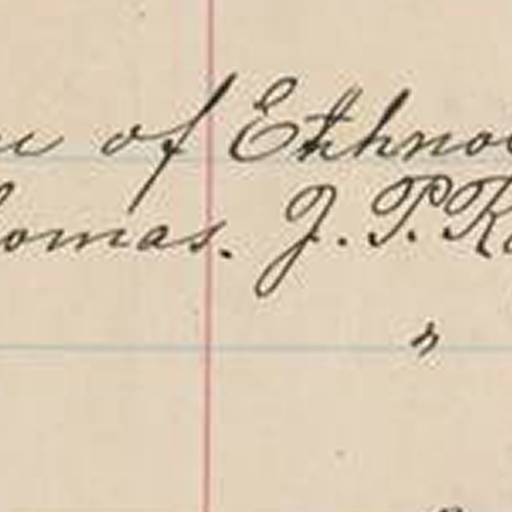 of Ethno
homas. J. P. R
"